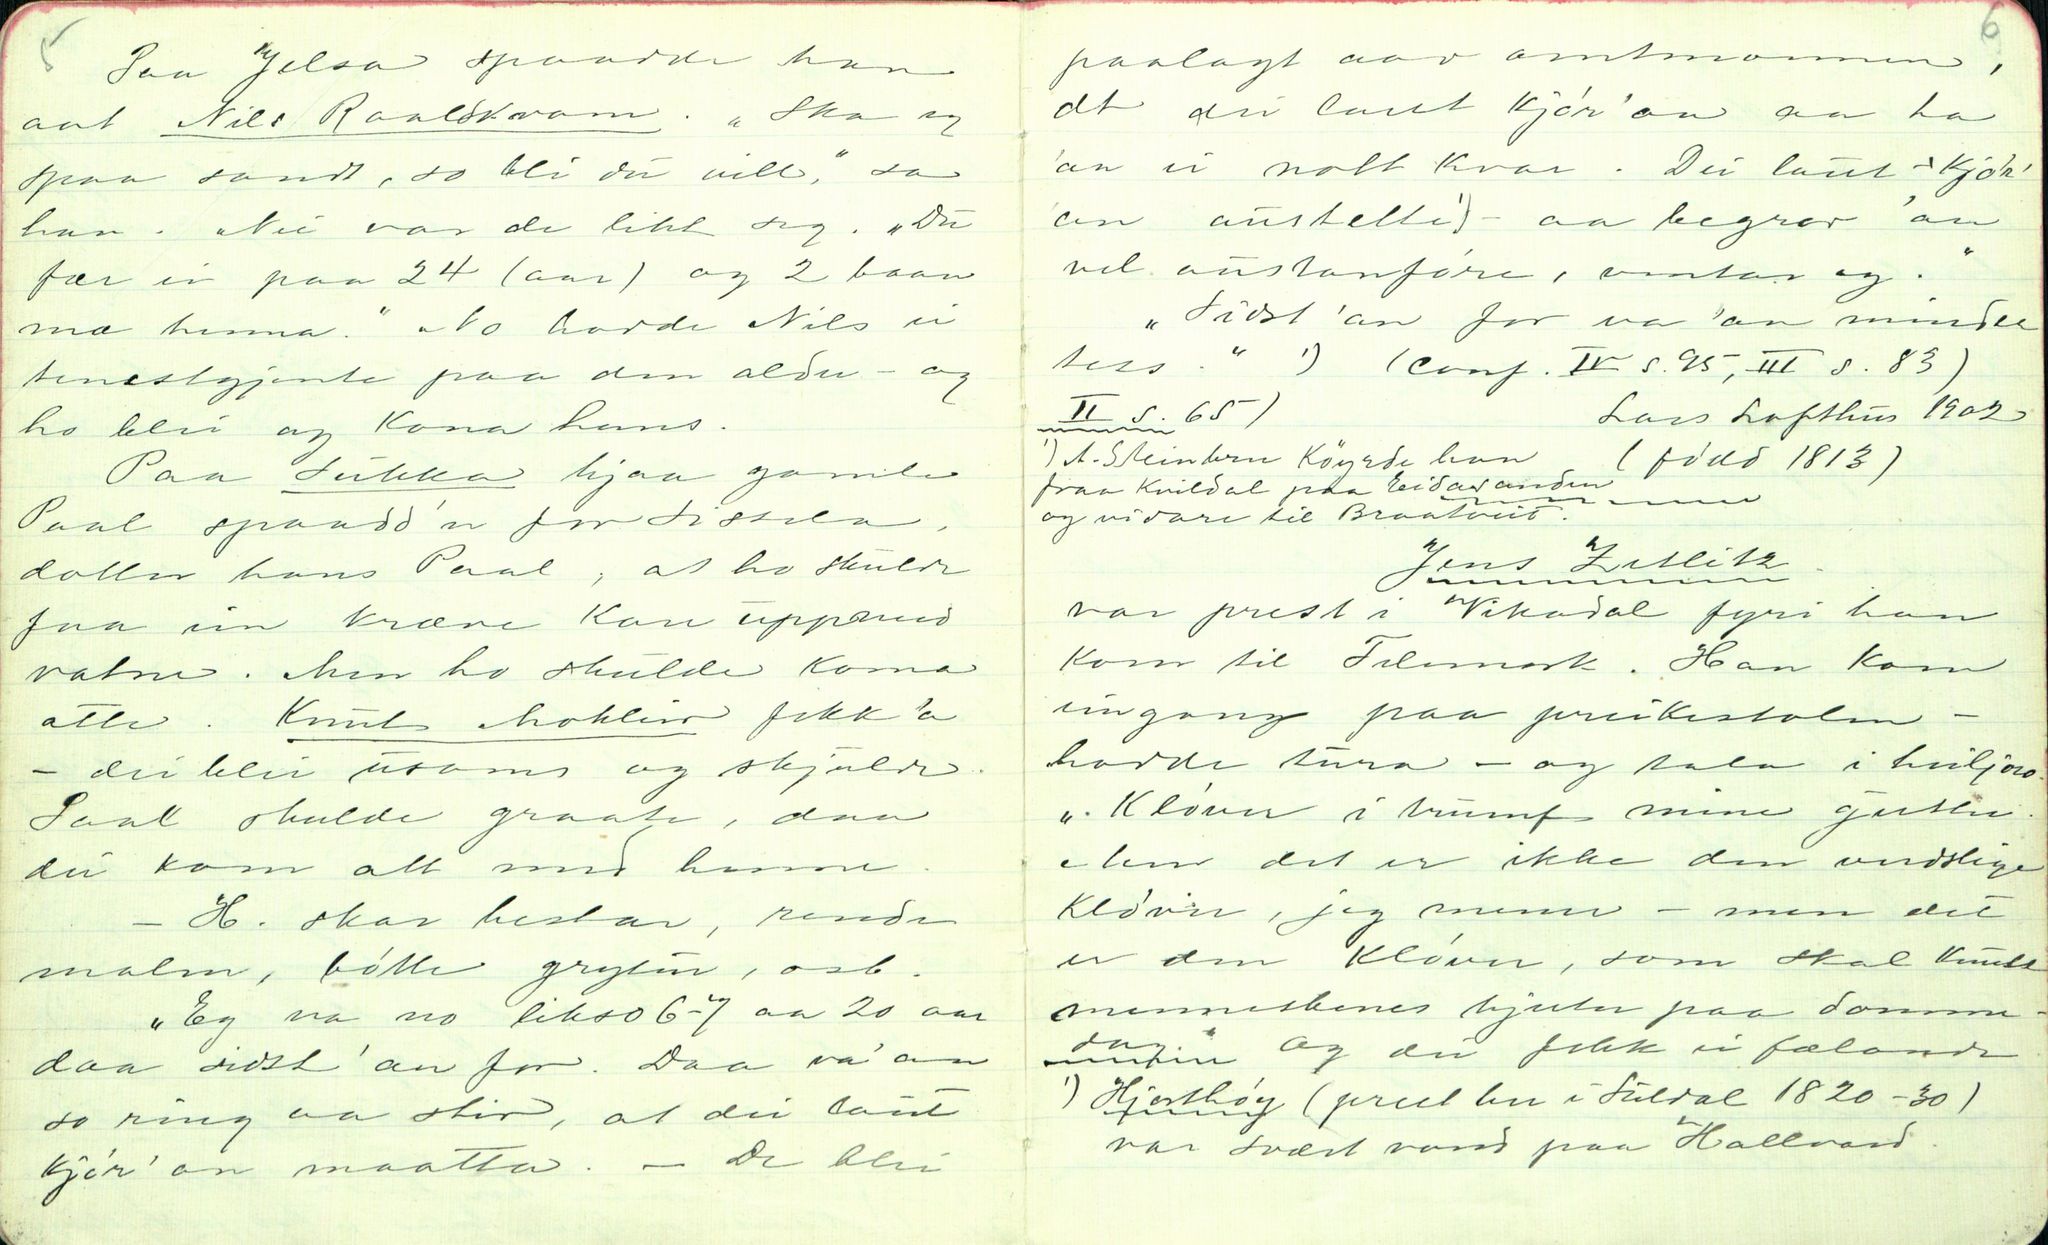 5
Paa Jelsa spaadde han
aat Nils Raaldkvam. „Ska eg
spaa sandt, so bli du vill," sa
han. Nei var de likt seg. „Du
fær ei paa 24 (aar) og 2 baan
mæ henna." No hadde Nils ei
tenestgjenta paa den alder – og
ho blei og kona hans.
Paa Sukka hjaa gamle
Paal spaadd'n for Sissela,
dotter hans Paal, at ho skulde
faa ein kar uppmed
vatne. Men ho skulde koma
atte. Knut Mokleiv fekk 'a
– dei blei usams og skjulde.
Paal skulde graate, daa
dei kom att med henne.
– H. skar hestar, rende
malm, bótte grytur, osb.
„Eg va no likso 6-7 aa 20 aar
daa sidst 'an for. Daa va 'an
so ring aa stir, at dei laut
kjór' 'an maatta. – De blei
6
paalagt aav amtmannen,
at dei laut kjór' 'an aa ha
'an ei nott kvar. Dei laut kjór'
'an austette¹) – aa begrov 'an
vel austanfóre, ventar eg."
„Sidst 'an for va 'an mindre
tess." ¹) (conf. IV s. 95, III s. 83)
II s. 65) Lars Lofthus 1902
¹) A. Steinbru köyrde han (född 1813)
fraa Kvildal paa Eidastranden
og vidare til Braatveit.
Jens Zetlitz
var prest i Vikadal fyri han
kom til Telemark. Han kom
eingong paa preikestolen –
hadde tura – og tala i hiljoro.
„Klóver i trumf mine gutter.
Men det er ikke den verdslige
Klóver, jeg mener – men det
er den Klóver, som skal knuse
menneskenes hjerter paa domme-
dag." Og dei fekk ei fælande
¹) Hjorthóy (prest her i Suldal 1820–30)
var svært vond paa Hallvard.